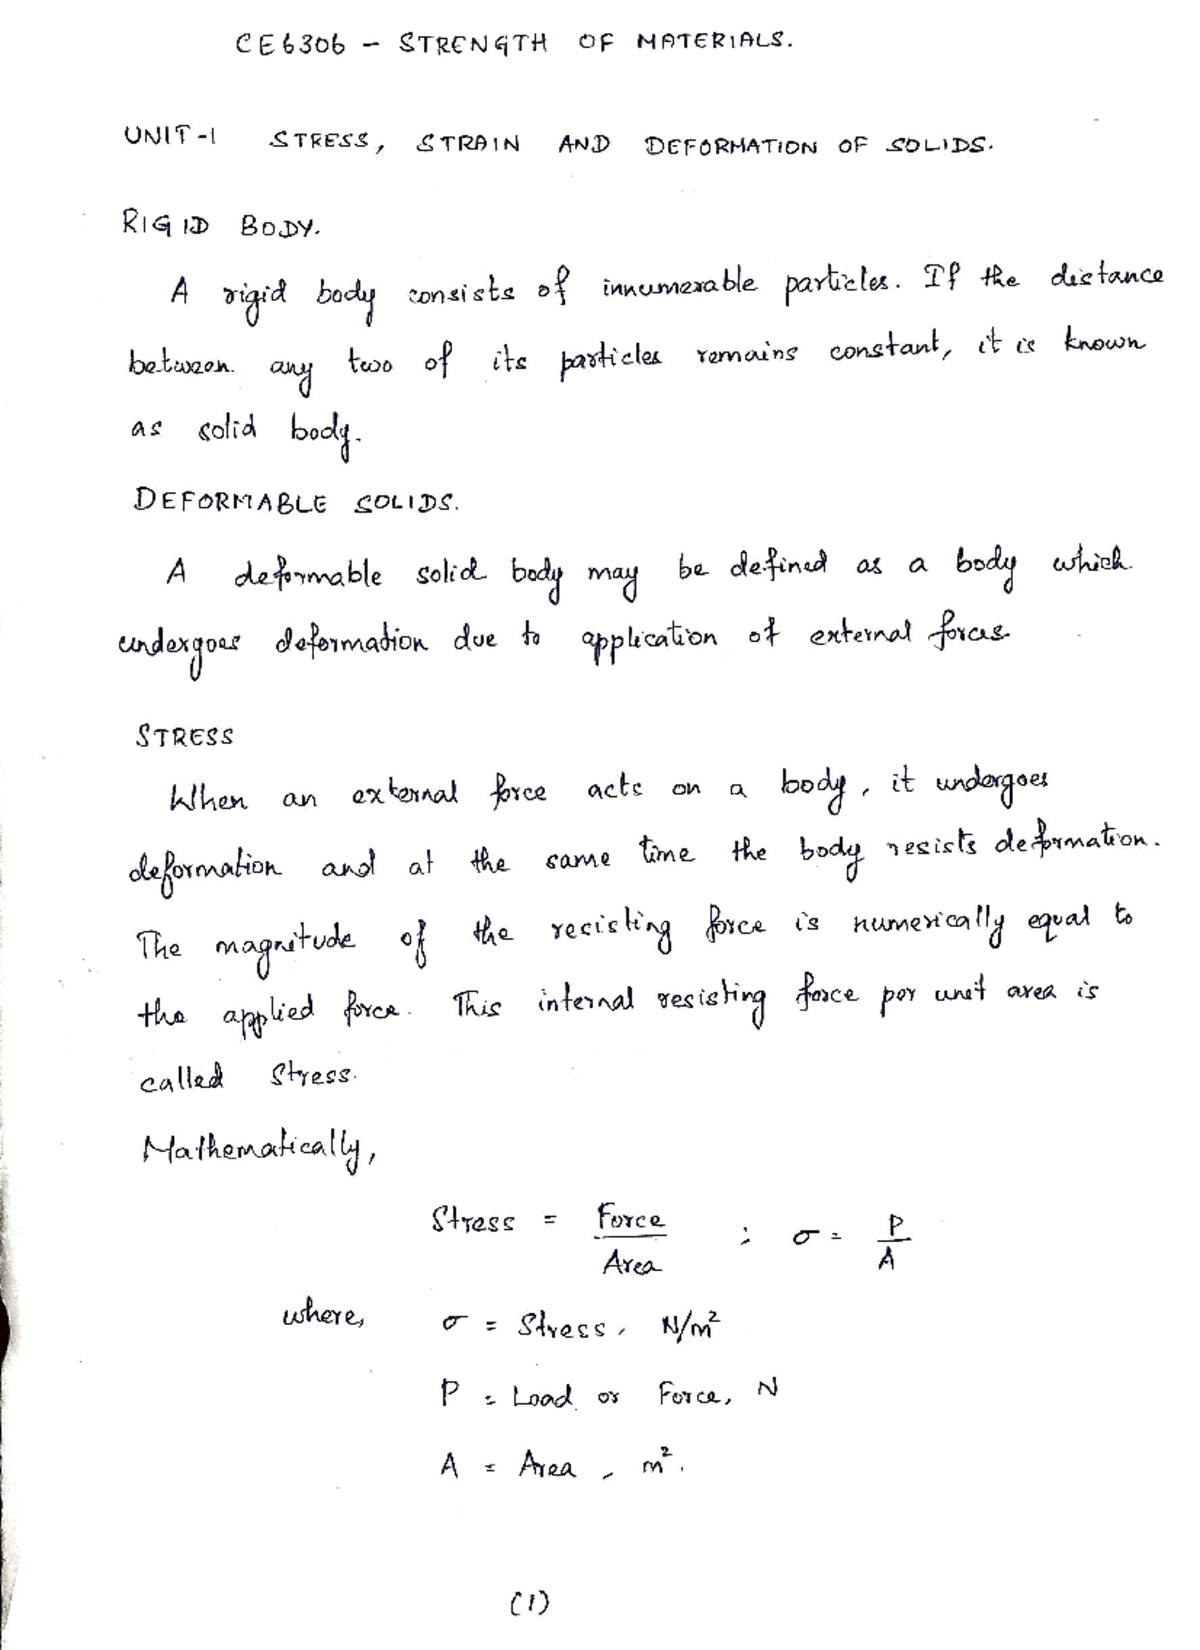 CE6306 - STRENGTH OF MATERIALS.
UNIT-1 STRESS, STRAIN AND DEFORMATION OF SOLIDS.
RIGID BODY.
A rigid body consists of innumerable particles. If the distance
between any two of its particles remains constant, it is known
as solid body.
DEFORMABLE SOLIDS.
A deformable solid body may be defined as a body which
undergoes deformation due to application of external forces
STRESS
When an external force acts on a body, it undergoes
deformation and at the same time the body resists deformation.
The magnitude of the resisting force is numerically equal to
the applied force. This internal resisting force per unit area is
called Stress.
Mathematically,
Stress = Force / Area ; σ = P / A
where, σ = Stress, N/m²
P = Load or Force, N
A = Area, m².
(1)